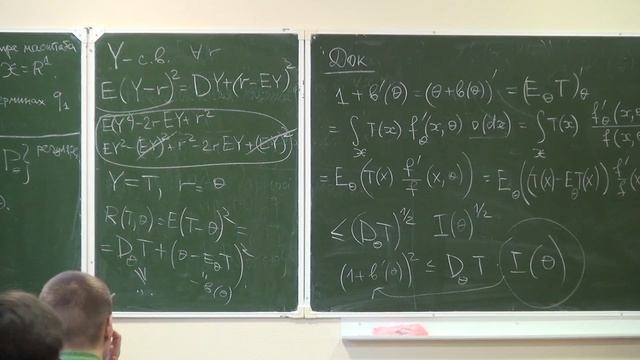 масштаба
𝒳 = R¹.
терминах q₁
P = }
Y – с.в. ∀r
E(Y–r)² = DY + (r–EY)²
EY²–2rEY+r²
EY²–(EY)²+r²–2rEY+(EY)²
Y=T, r=θ
R(T,θ) = E(T–θ)² =
= D_θT + (θ–E_θT)²
...
–b(θ)
Док
1+b'(θ) = (θ+b(θ))' = (E_θT)'_θ
= ∫_𝒳 T(x) f'_θ(x,θ) ν(dx) = ∫_𝒳 T(x) f'_θ(x,θ) / f(x,
= E_θ(T(x) f'/f (x,θ)) = E_θ((T(x)–E_θT(x)) f'/f
≤ (D_θT)^{1/2} I(θ)^{1/2}
(1+b'(θ))² ≤ D_θT · I(θ)